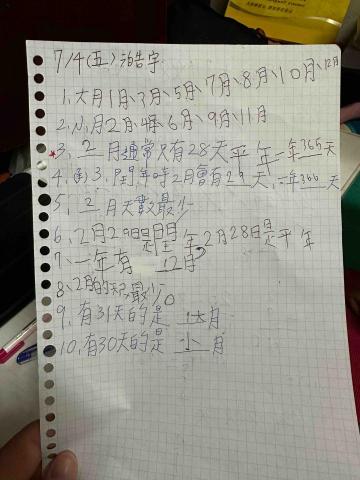 7/4(五)
1、大月1月、3月、5月、7月、8月、10月、12月
2、小月2月、4月、6月、9月、11月
*3、2月通常只有28天平年一年365天
4、3、閏年時2月會有29天,一年366天
5、2月天數最少
6、2月29日是閏年2月28日是平年
7、一年有12月
8、2月的天最少。
9、有31天的是大月
10、有30天的是小月